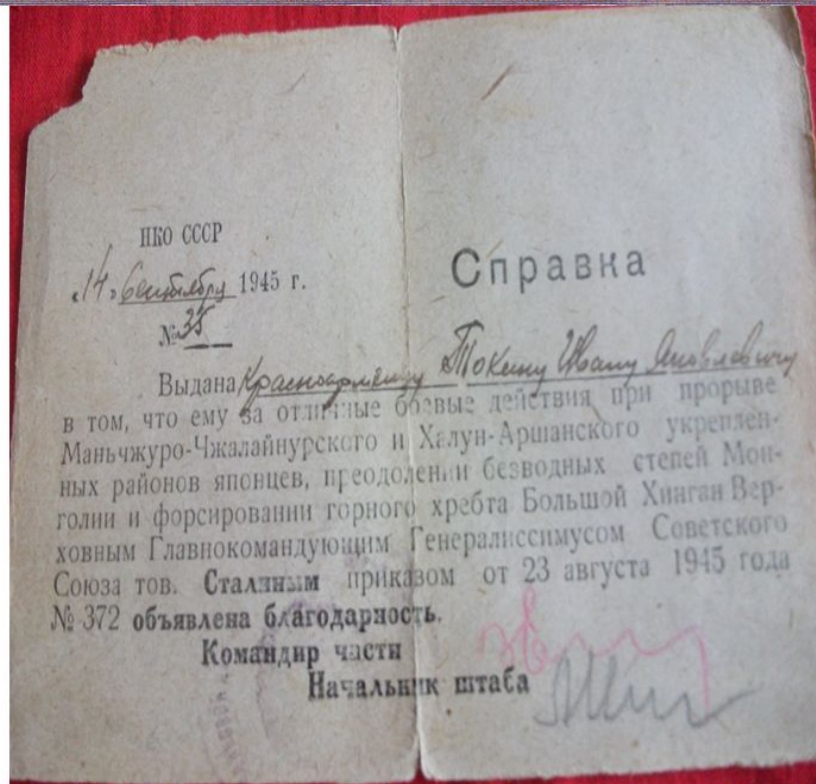 НКО СССР
"14" Сентября 1945 г.
№ 35
Справка
Выдана Красноармейцу Токину Ивану Яковлевичу
в том, что ему за отличные боевые действия при прорыве
Маньчжуро-Чжалайнурского и Халун-Аршанского укреплен-
ных районов японцев, преодолении безводных степей Мон-
голии и форсировании горного хребта Большой Хинган Вер-
ховным Главнокомандующим Генералиссимусом Советского
Союза тов. Сталиным приказом от 23 августа 1945 года
№ 372 объявлена благодарность.
Командир части
Начальник штаба